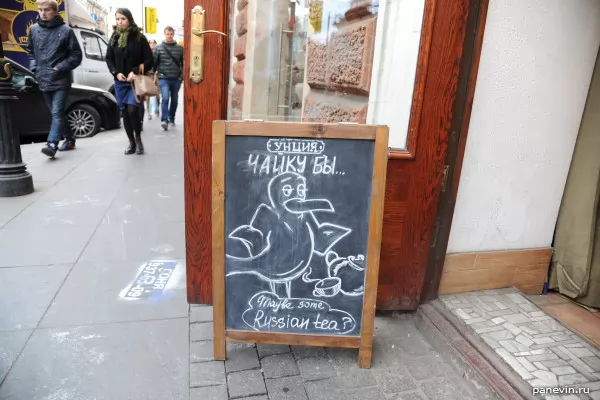 УНЦИЯ
ЧАЙКУ БЫ...
Maybe some
Russian tea?
panevin.ru